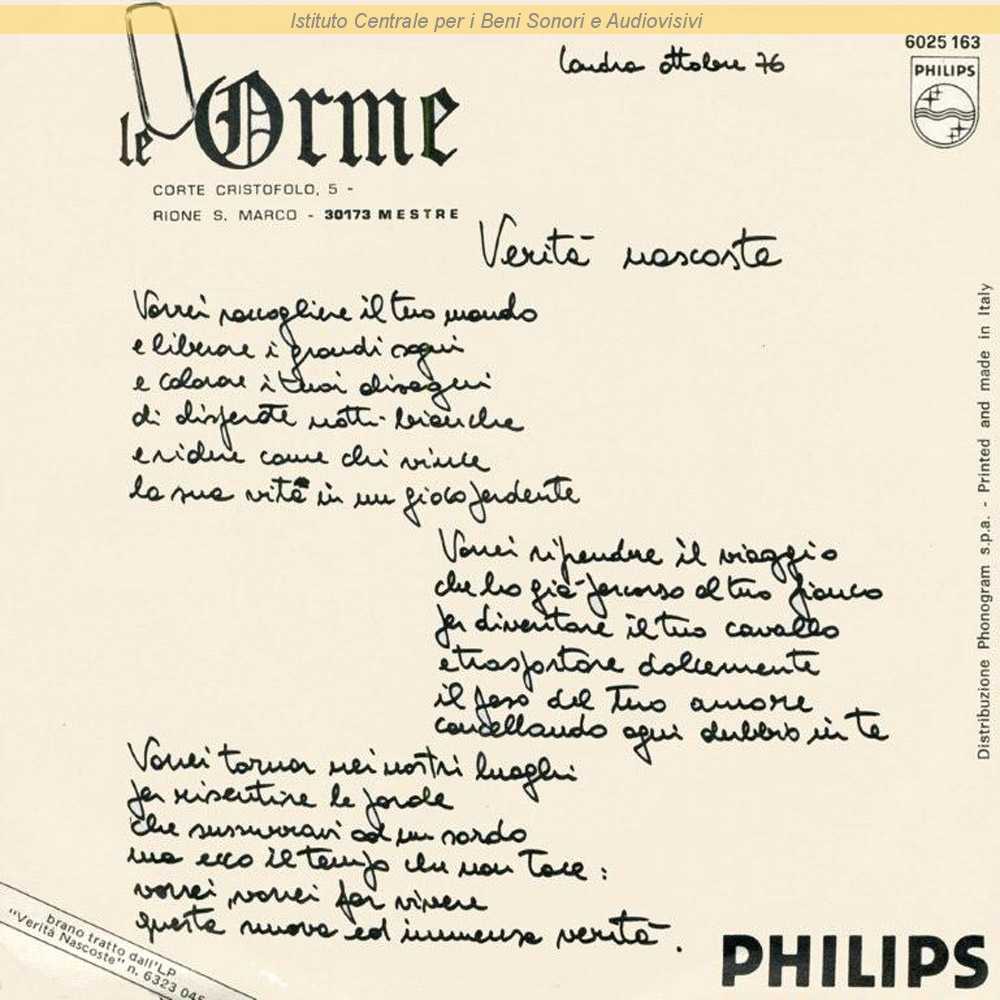 Istituto Centrale per i Beni Sonori e Audiovisivi
6025 163
Londra ottobre 76
PHILIPS
le Orme
CORTE CRISTOFOLO, 5 -
RIONE S. MARCO - 30173 MESTRE
Verità nascoste
Vorrei raccogliere il tuo mondo
e liberare i grandi sogni
e colorare i tuoi disegni
di disperate notti bianche
e ridere come chi vince
la sua vita in un gioco perdente
Vorrei riprendere il viaggio
che ho già percorso al tuo fianco
per diventare il tuo cavallo
e trasportare dolcemente
il peso del tuo amore
cancellando ogni dubbio in te
Vorrei tornar nei nostri luoghi
per risentire le parole
che sussurravi ad un sordo
ma ecco il tempo che non tace:
vorrei, vorrei far vivere
questa nuova ed immensa verità.
brano tratto dall'LP
"Verità Nascoste" n. 6323 045
Distribuzione Phonogram s.p.a. - Printed and made in Italy
PHILIPS